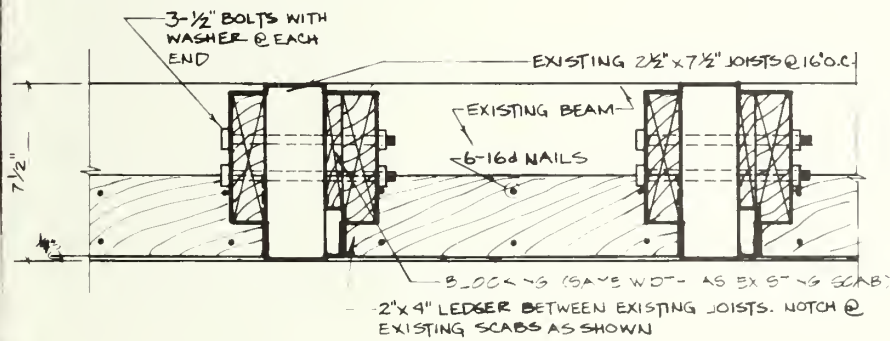 3-½" BOLTS WITH
WASHER @ EACH
END
EXISTING 2½" x 7½" JOISTS @ 16" O.C.
EXISTING BEAM
6-16d NAILS
7½"
BLOCKING (SAME WIDTH AS EXISTING SCAB)
2" x 4" LEDGER BETWEEN EXISTING JOISTS. NOTCH @
EXISTING SCABS AS SHOWN